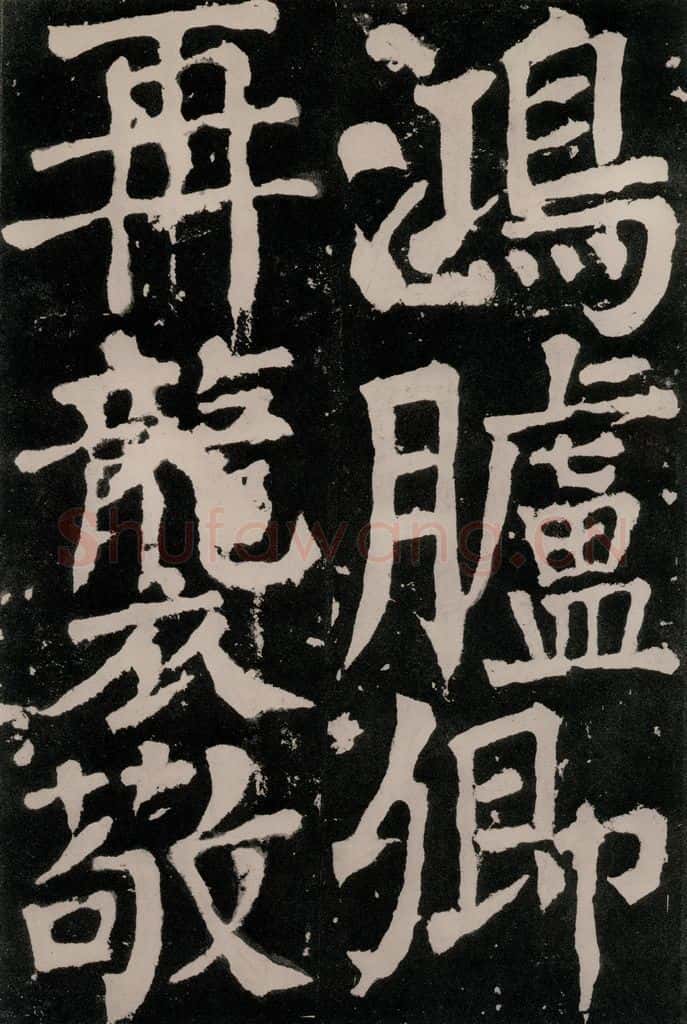 鴻臚卿
再襲敬
Shufawang.CN